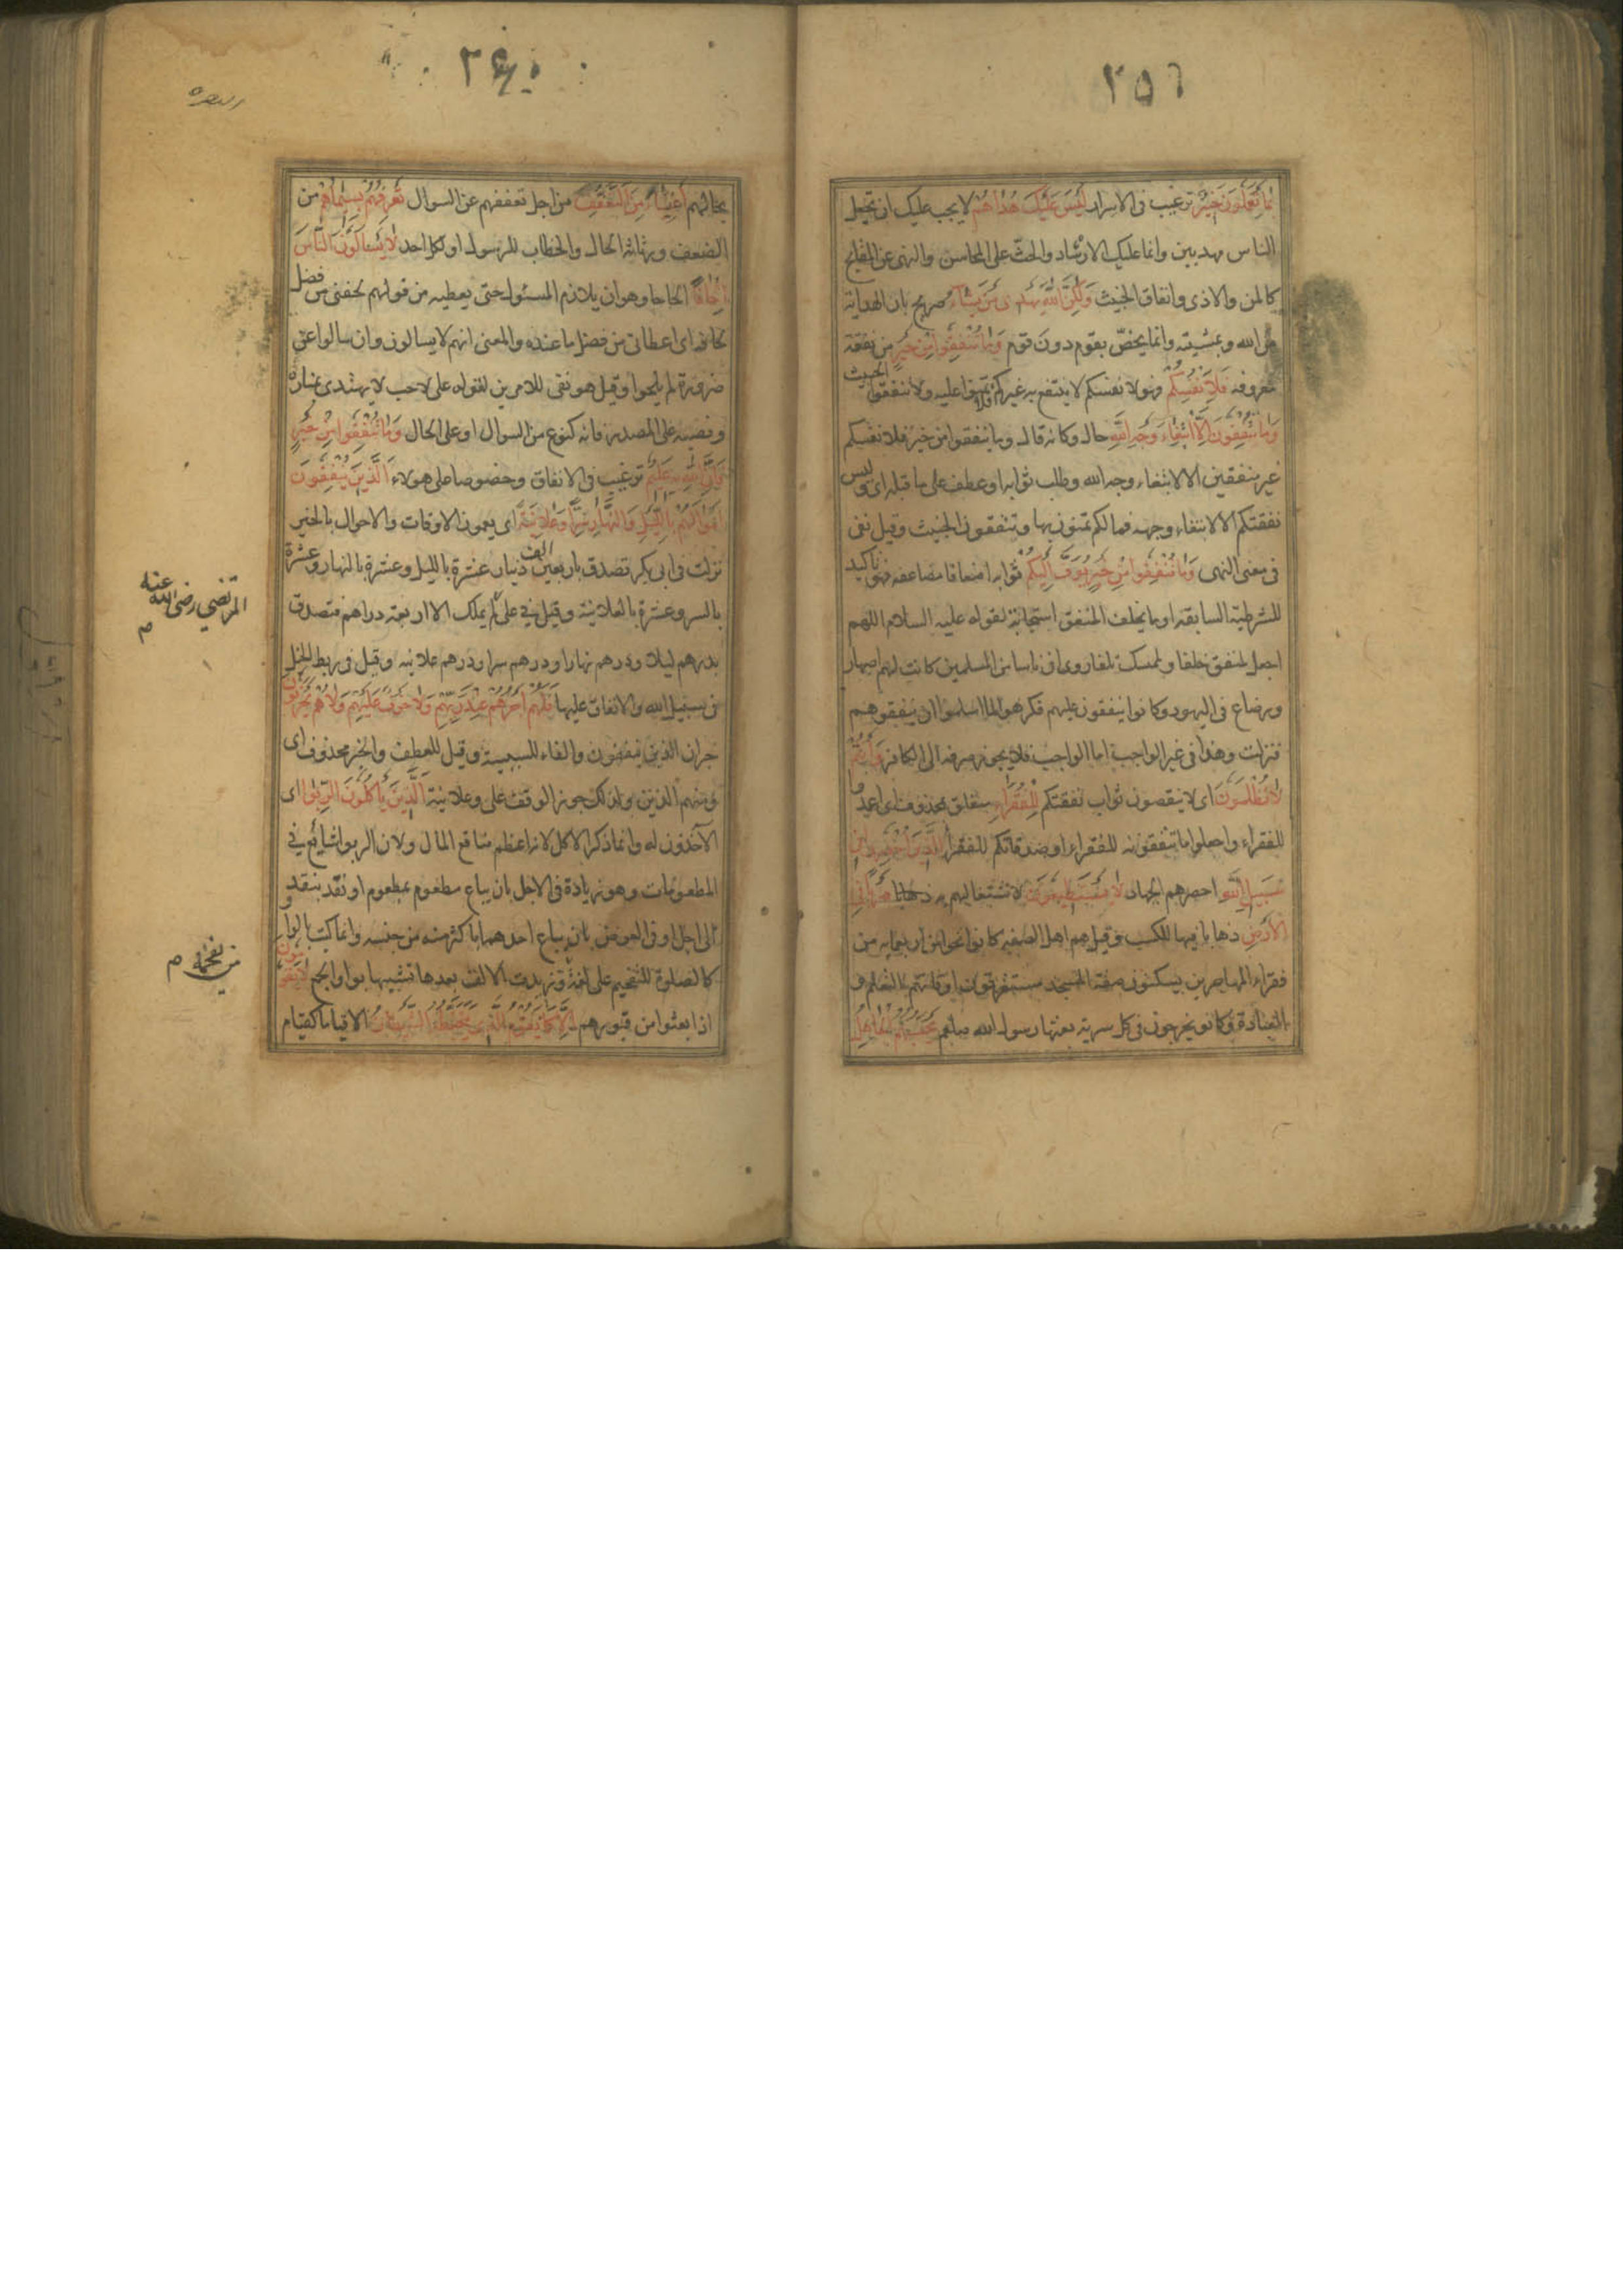 ٢٥٦
بما تعملون خبير ترغيب فى الاسرار ليس عليك هداهم لا يجب عليك ان تجعل
الناس مهديين وانما عليك الارشاد والحث على المحاسن والنهى عن القبايح
كالمن والاذى وانفاق الخبيث ولكن الله يهدى من يشاء صريح بان الهداية
من الله وبمشيته وانما يخص بقوم دون قوم وما تنفقوا من خير من نفقة
معروفه فلانفسكم فهو لانفسكم لا ينتفع به غيركم فلا تمنوا عليه ولا تنفقوا الخبيث
وما تنفقون الا ابتغاء وجه الله حال وكانه قال وما تنفقوا من خير فلانفسكم
غير منفقين الا لابتغاء وجه الله وطلب ثوابه او عطف على ما قبله اى وليس
نفقتكم الا لابتغاء وجهه فما لكم تمنون بها وتنفقون الخبيث وقيل نفى
فى معنى النهى وما تنفقوا من خير يوف اليكم ثوابه اضعافا مضاعفه فهو تاكيد
للشرطية السابقه او ما يخلف المنفق استجابة لقوله عليه السلام اللهم
اجعل لمنفق خلفا ولممسك تلفا روى ان ناسا من المسلمين كانت لهم اصهار
ورضاع فى اليهود وكانوا ينفقون عليهم فكرهوا لما اسلموا ان ينفقوهم
فنزلت وهذا فى غير الواجب اما الواجب فلا يجوز صرفه الى الكافر وانتم
لا تظلمون اى لا ينقصون ثواب نفقتكم للفقراء متعلق بمحذوف اى اعمدوا
للفقراء واجعلوا ما تنفقونه للفقراء او صدقاتكم للفقراء الذين احصروا فى
سبيل الله احصرهم الجهاد لا يستطيعون لاشتغالهم به ذهابا ضربا فى
الارض ذهابا فيها للكسب وقيل هم اهل الصفه كانوا نحوا من اربعمايه من
فقراء المهاجرين يسكنون صفة المسجد مستغرقون اوقاتهم بالتعلم و
العبادة وكانو يخرجون فى كل سرية بعثها رسول الله صلعم يحسبهم الجاهل
٢٤٠
البقره
بحالهم اغنياء من التعفف من اجل تعففهم عن السوال تعرفهم بسيماهم من
الضعف ورثاثة الحال والخطاب للرسول او لكل احد لا يسالون الناس
الحافا الحاحا وهو ان يلازم المسئول حتى يعطيه من قولهم لحفنى من فضل
لحافه اى اعطانى من فضل ما عنده والمعنى انهم لا يسالون وان سالوا عن
ضرورة لم يلحوا وقيل هو نفى للامرين لقوله على لاحب لا يهتدى بمناره
ونصبه على المصدر فانه كنوع من السوال او على الحال وما تنفقوا من خير
فان الله به عليم ترغيب فى الانفاق وخصوصا على هولاء الذين ينفقون
اموالهم بالليل والنهار سرا وعلانية اى يعمون الاوقات والاحوال بالخير
نزلت فى ابى بكر تصدق باربعين الف دينار عشرة بالليل وعشرة بالنهار وعشرة
بالسر وعشرة بالعلانية وقيل فى على لم يملك الا اربعة دراهم فتصدق
المرتضى رضى الله عنه م
بدرهم ليلا ودرهم نهارا ودرهم سرا ودرهم علانيه وقيل فى ربط الخيل
فى سبيل الله والانفاق عليها فلهم اجرهم عند ربهم ولا خوف عليهم ولا هم يحزنون
خبر ان الذين ينفقون والفاء للسببية وقيل للعطف والخبر محذوف اى
ومنهم الذين ولذلك جوز الوقف على وعلانية الذين ياكلون الربوا اى
الآخذون له وانما ذكر الاكل لانه اعظم منافع المال ولان الربوا شايع فى
المطعومات وهو زيادة فى الاجل بان يباع مطعوم بمطعوم او نقد بنقد
الى اجل او فى العوض بان يباع احدهما باكثر منه من جنسه وانما كتب بالواو
كالصلوة للتفخيم على لغة وزيدت الالف بعدها تشبيها بواو الجمع لا يقومون
اذا بعثوا من قبورهم الا كما يقوم الذى يتخبطه الشيطان الا قياما كقيام